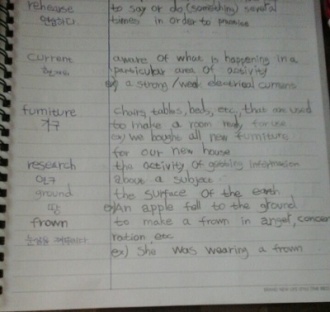 rehease to say or do (something) several
연습하다 times in order to practice
current aware of what is happening in a
particular area of activity
ex) a strong/weak electrical current
furniture chairs, tables, beds, etc., that are used
가구 to make a room ready for use
ex) we bought all new furniture
for our new house
research the activity of getting information
연구 about a subject
ground the surface of the earth
땅 ex) An apple fell to the ground
frown to make a frown in anger, concent
ration, etc
ex) She was wearing a frown